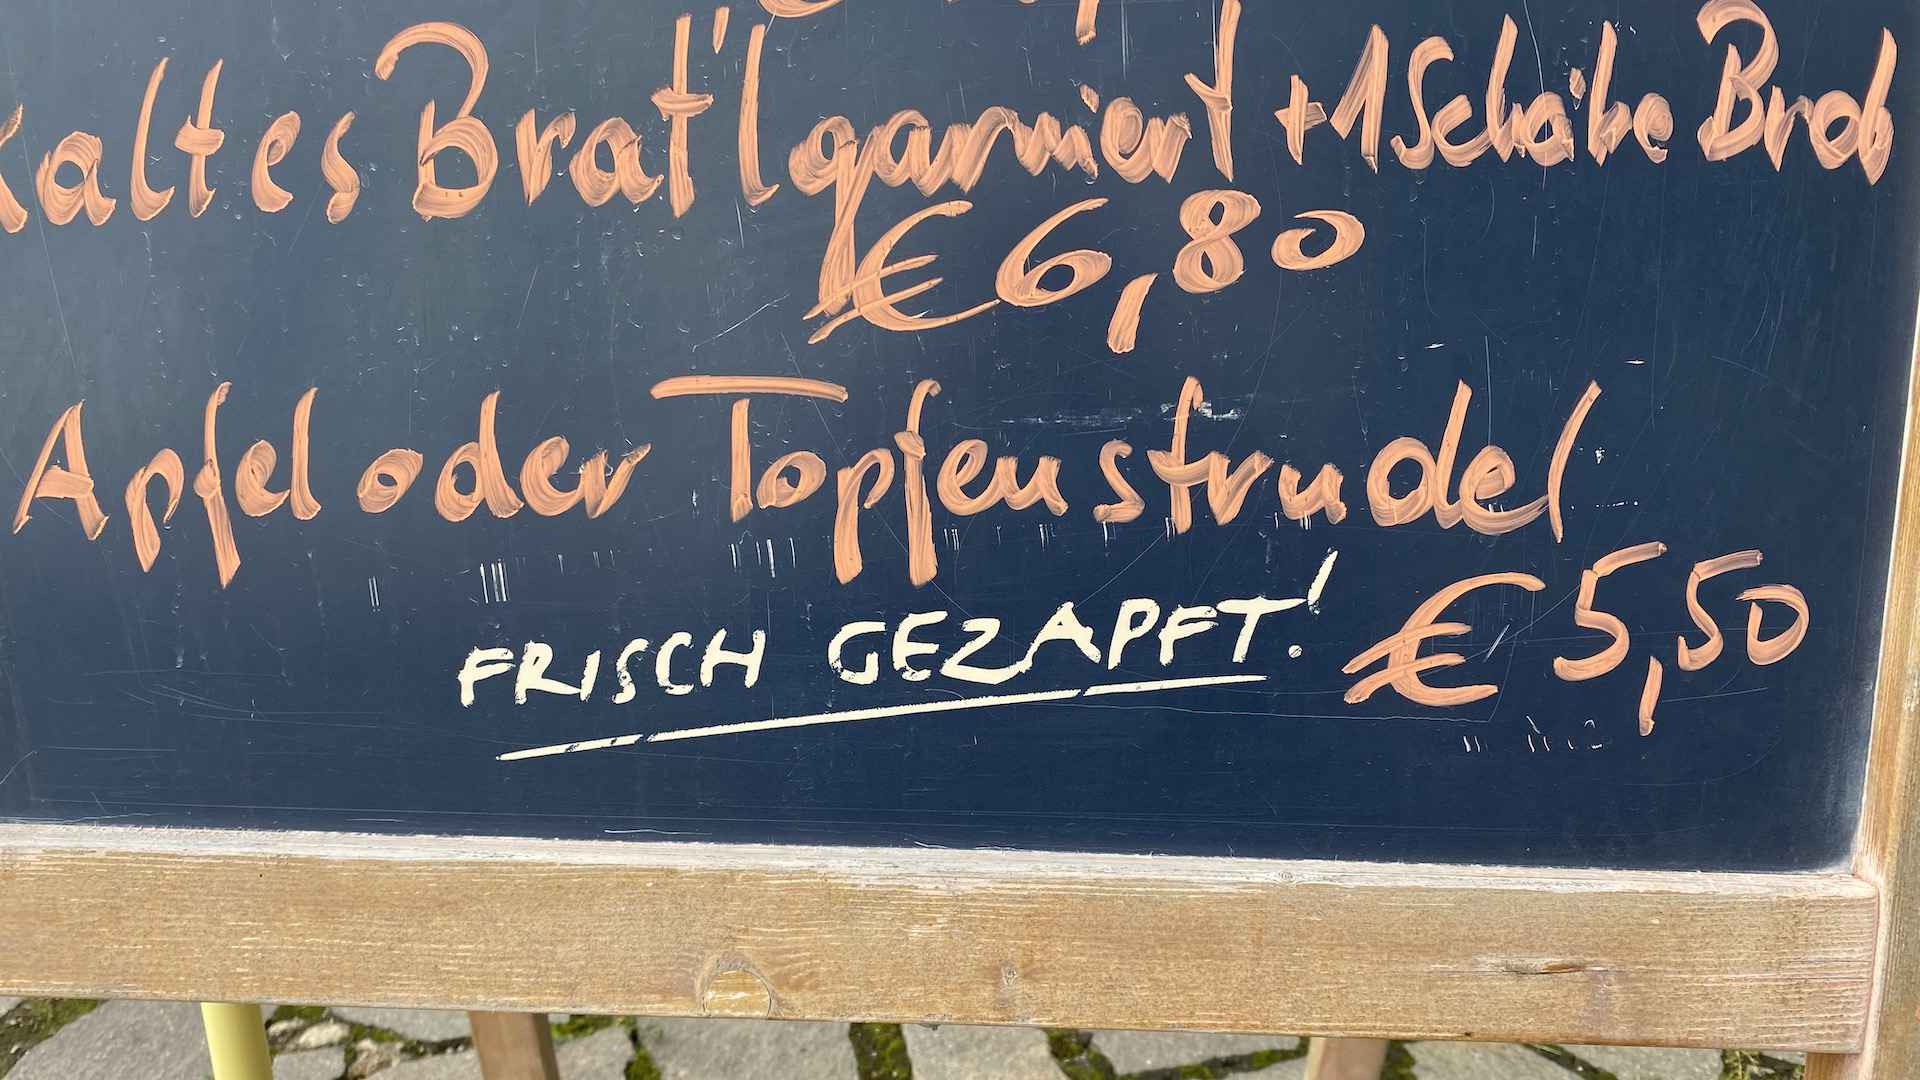 kaltes Brat'l garniert + 1 Scheibe Brot
€ 6,80
Apfel oder Topfenstrudel
FRISCH GEZAPFT!
€ 5,50